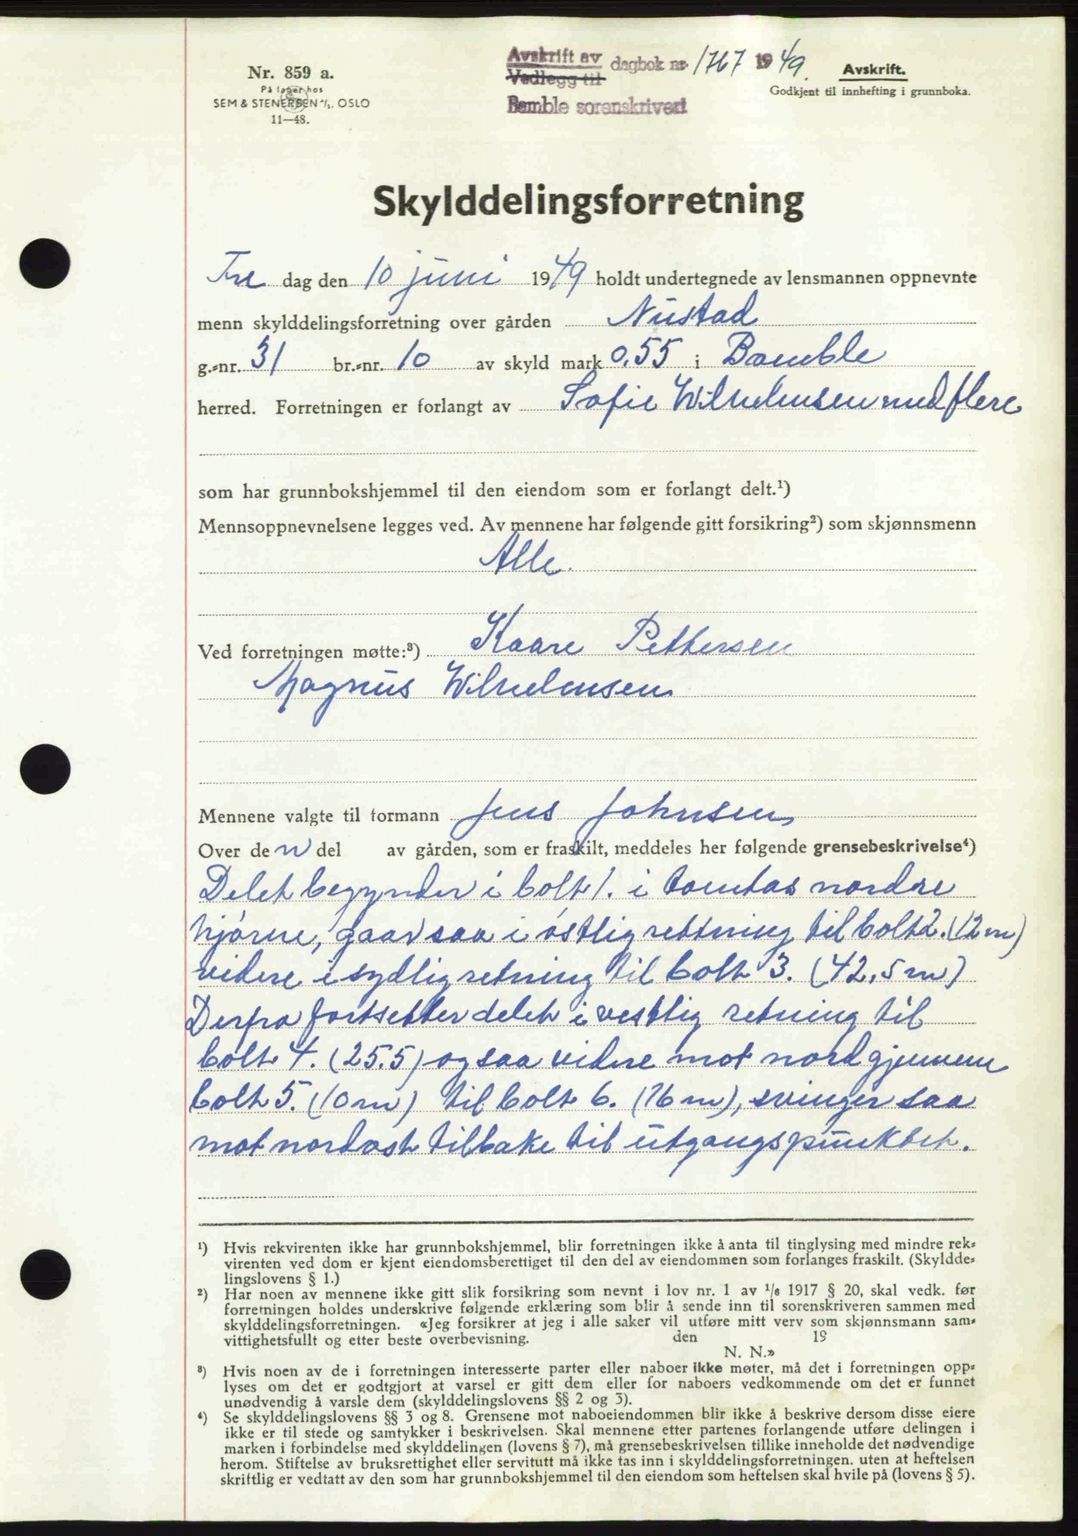 Nr. 859 a.
På lager hos
SEM & STENERSEN A/S, OSLO
11—48.
Avskrift av dagbok nr. 1767 1949.
Vedlegg til
Bamble sorenskriveri
Avskrift.
Godkjent til innhefting i grunnboka.
Skylddelingsforretning
Fre dag den 10 juni 1949 holdt undertegnede av lensmannen oppnevnte
menn skylddelingsforretning over gården Nustad
g.-nr. 31 br.-nr. 10 av skyld mark 0,55 i Bamble
herred. Forretningen er forlangt av Sofie Wilhelmsen med flere
som har grunnbokshjemmel til den eiendom som er forlangt delt.¹)
Mennsoppnevnelsene legges ved. Av mennene har følgende gitt forsikring²) som skjønnsmenn
Alle.
Ved forretningen møtte:³) Kaare Pettersen
Magnus Wilhelmsen
Mennene valgte til formann Jens Johnsen
Over den del av gården, som er fraskilt, meddeles her følgende grensebeskrivelse⁴)
Delet begynder i bolt 1. i tomtas nordre
hjørne, gaar saa i østlig rettning til bolt 2. (12 m)
videre i sydlig retning til bolt 3. (42,5 m)
Derfra fortsetter delet i vestlig retning til
bolt 4. (25.5) og saa videre mot nord gjennem
bolt 5. (10 m) til bolt 6. (16 m), svinger saa
mot nordost tilbake til utgangspunktet.
¹) Hvis rekvirenten ikke har grunnbokshjemmel, blir forretningen ikke å anta til tinglysing med mindre rek-
virenten ved dom er kjent eiendomsberettiget til den del av eiendommen som forlanges fraskilt. (Skyldde-
lingslovens § 1.)
²) Har noen av mennene ikke gitt slik forsikring som nevnt i lov nr. 1 av 1/6 1917 § 20, skal vedk. før
forretningen holdes underskrive følgende erklæring som blir å sende inn til sorenskriveren sammen med
skylddelingsforretningen. «Jeg forsikrer at jeg i alle saker vil utføre mitt verv som skjønnsmann sam-
vittighetsfullt og etter beste overbevisning. den 19
N. N.»
³) Hvis noen av de i forretningen interesserte parter eller naboer ikke møter, må det i forretningen opp-
lyses om det er godtgjort at varsel er gitt dem eller for naboers vedkommende om det er funnet
unødvendig å varsle dem (skylddelingslovens §§ 2 og 3).
⁴) Se skylddelingslovens §§ 3 og 8. Grensene mot naboeiendommen blir ikke å beskrive dersom disse eiere
ikke er til stede og samtykker i beskrivelsen. Skal mennene etter partenes forlangende utføre delingen i
marken i forbindelse med skylddelingen (lovens § 7), må grensebeskrivelsen tillike inneholde det nødvendige
herom. Stiftelse av bruksrettighet eller servitutt må ikke tas inn i skylddelingsforretningen. uten at heftelsen
skriftlig er vedtatt av den som har grunnbokshjemmel til den eiendom som heftelsen skal hvile på (lovens § 5).